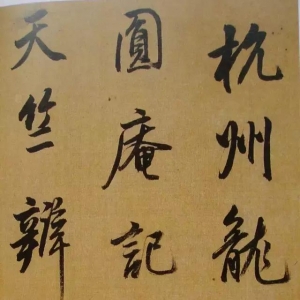 杭州龍
圓庵記
天竺辯